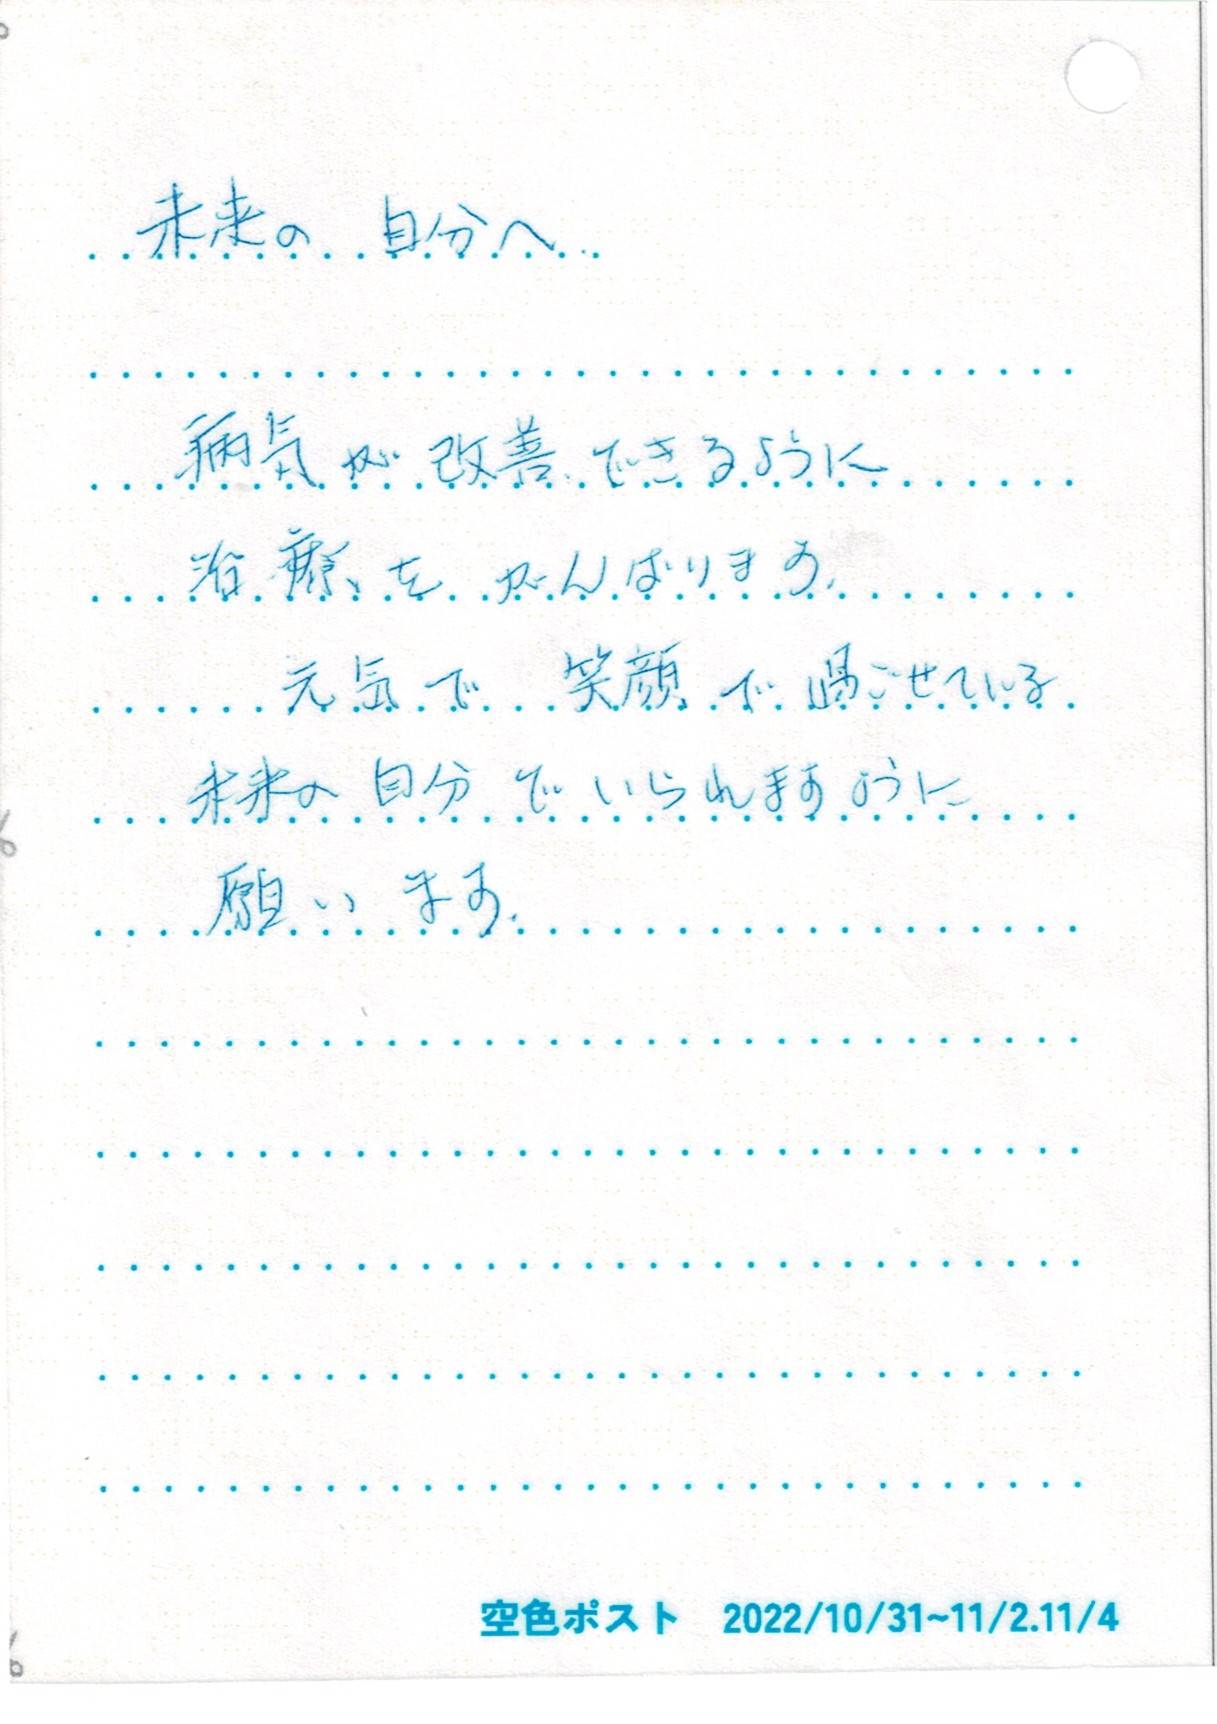 未来の 自分へ
病気が改善できるように
治療をがんばります。
元気で 笑顔で過ごせている
未来の自分でいられますように
願います。
空色ポスト 2022/10/31~11/2.11/4